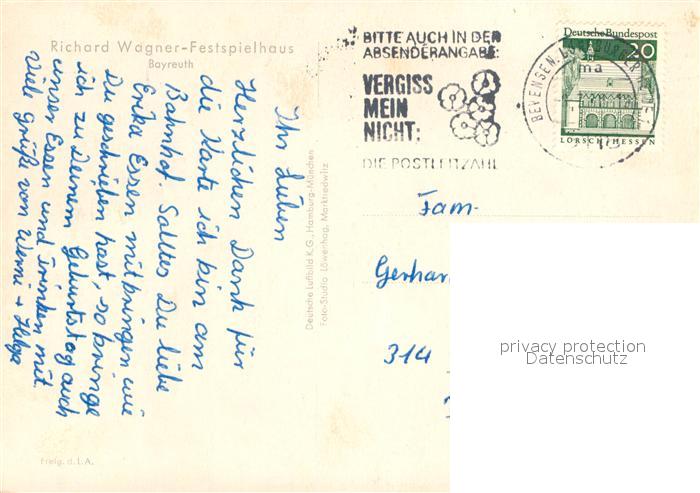 Richard Wagner-Festspielhaus
Bayreuth
Ihr Lieben
Herzlichen Dank für
die Karte ich bin am
Bahnhof. Solltes Du liebe
Erika Essen mitbringen wie
Du geschrieben hast, so bringe
ich zu Deinem Geburtstag auch
unser Essen und Trinken mit.
Viele Grüße von Werni + Helga
Freig. d. L.A.
Deutsche Luftbild K.G., Hamburg-München
Foto-Studio Löwenhag, Marktredwitz
BITTE AUCH IN DER
ABSENDERANGABE:
VERGISS
MEIN
NICHT:
DIE POSTLEITZAHL
BEVENSEN
ma
Deutsche Bundespost
20
LORSCH/HESSEN
Fam.
Gerhar
314
privacy protection
Datenschutz